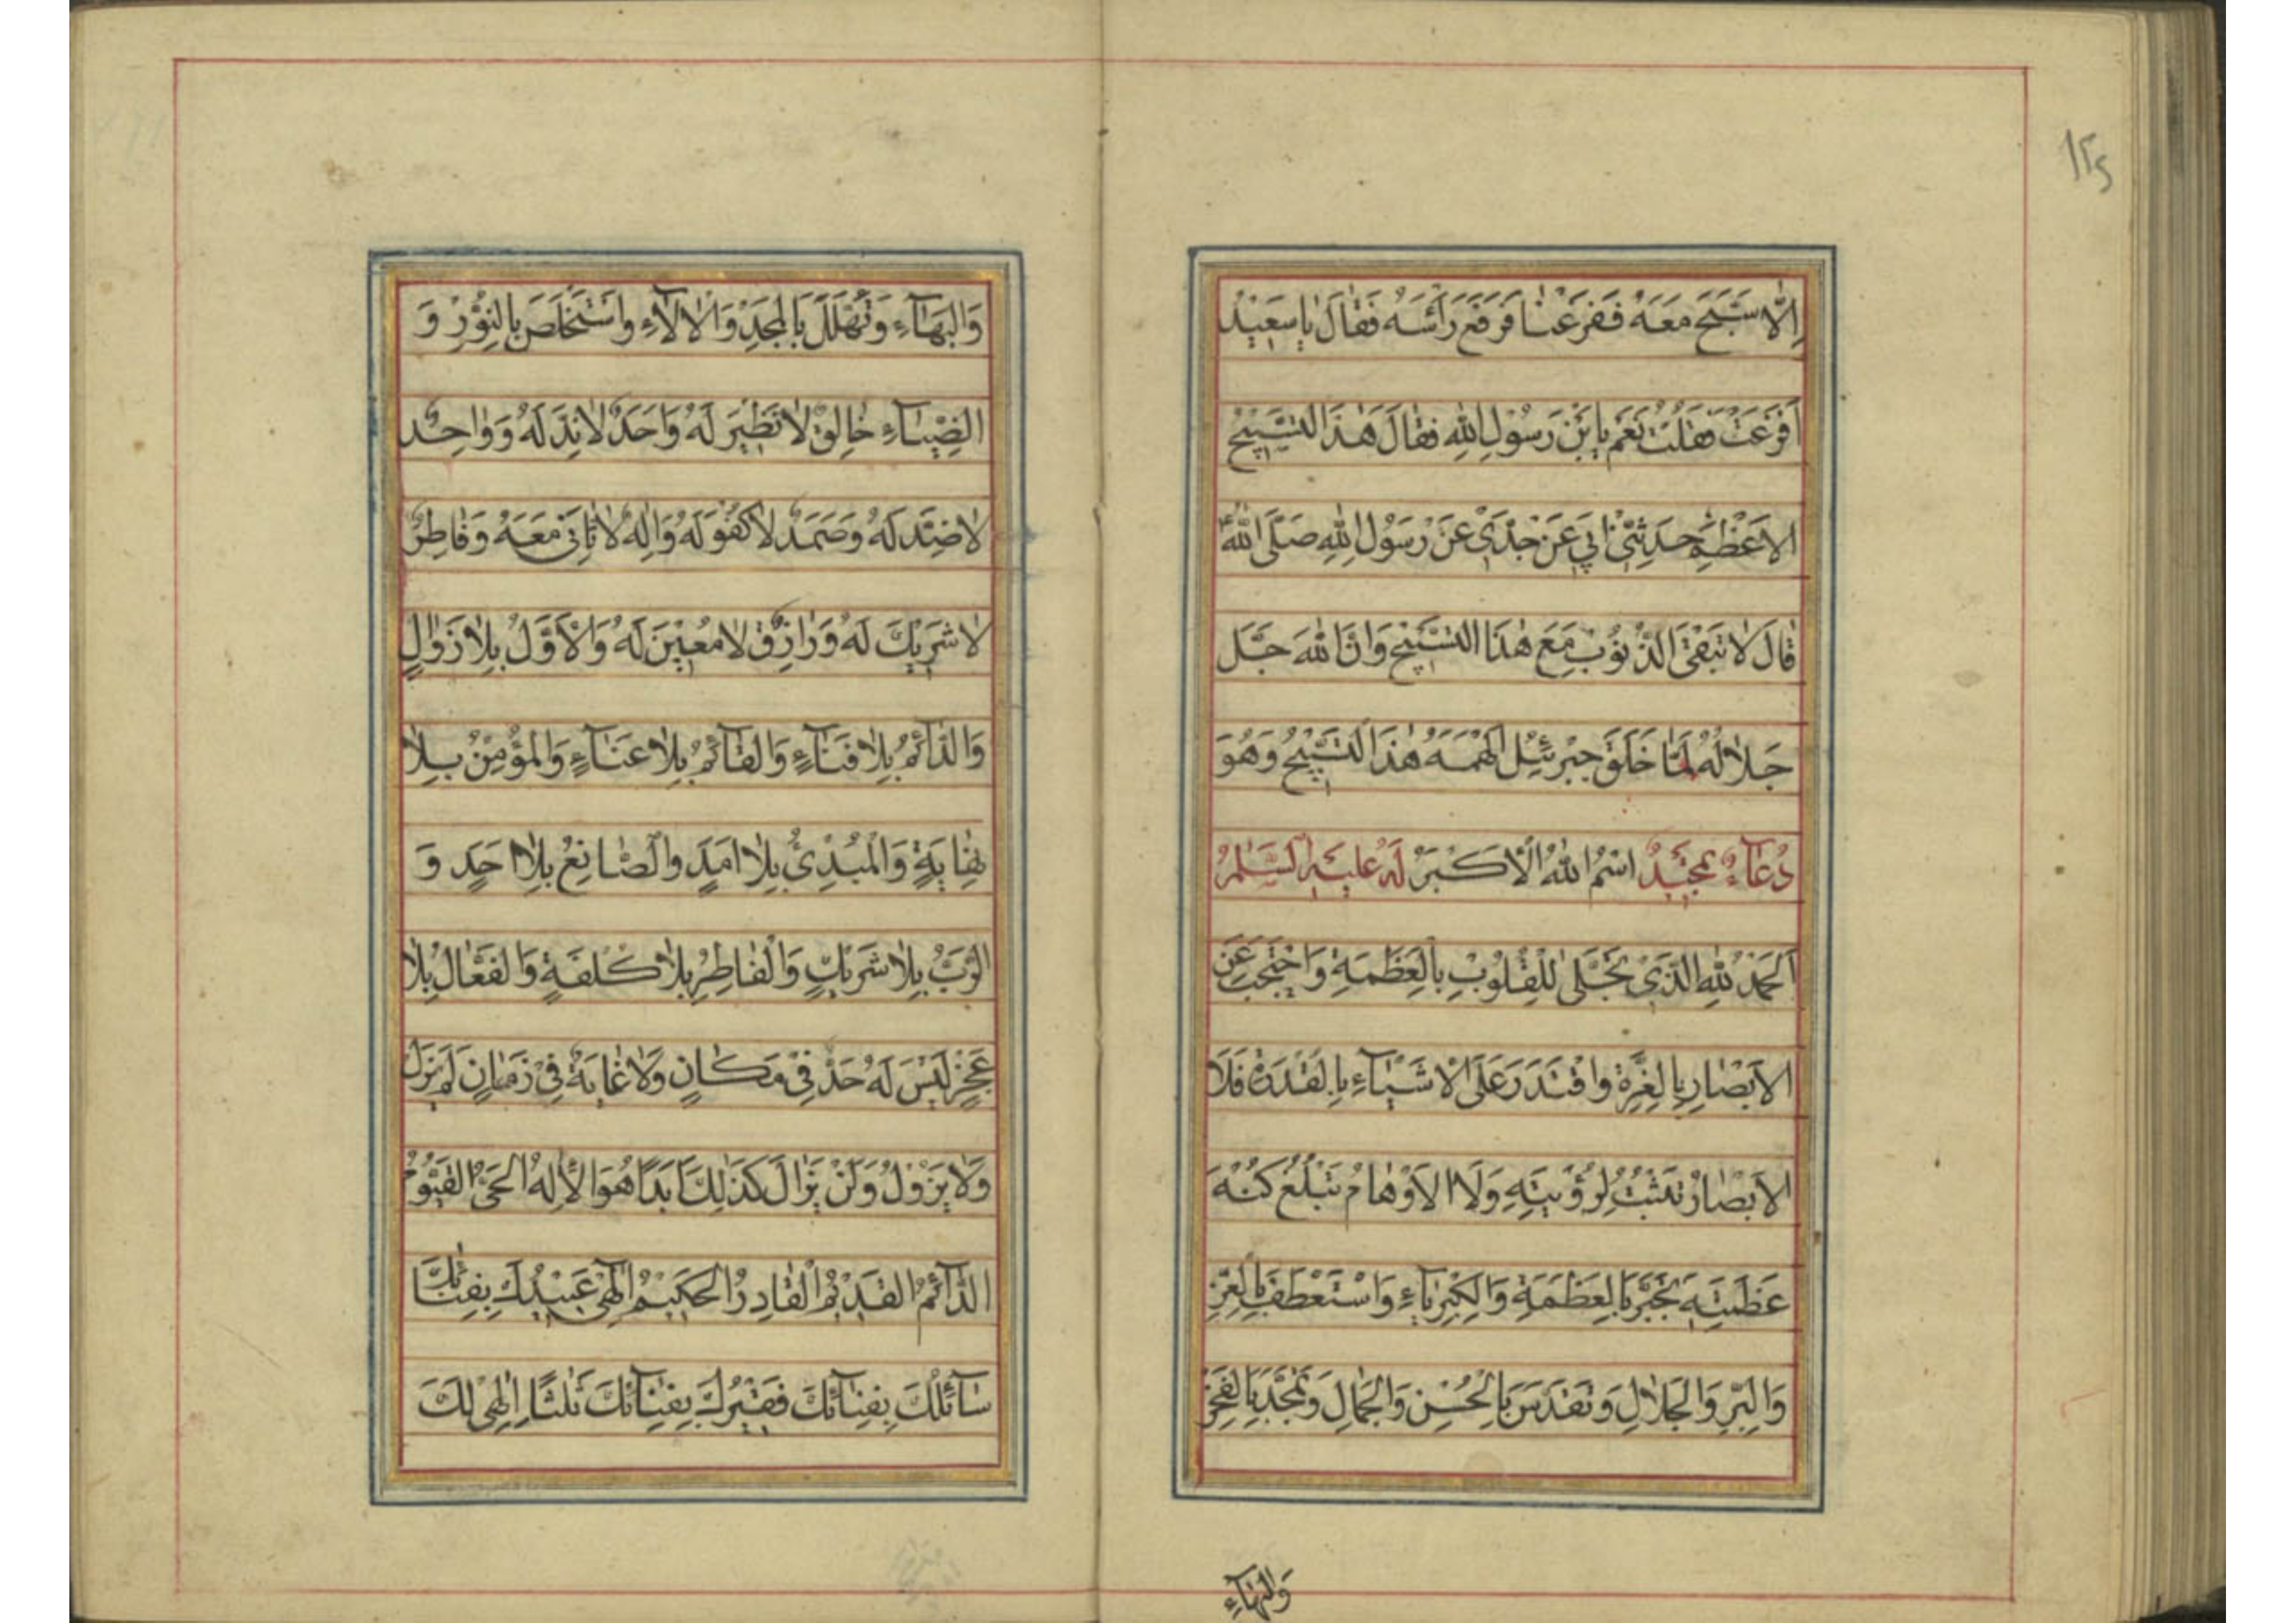 ۱۲۵
اِلّٰا سَبَّحَ مَعَهُ فَفَزِعْنٰا فَرَفَعَ رَأْسَهُ فَقٰالَ يٰا سَعيٖدُ
اَفَزِعْتَ فَقُلْتُ نَعَمْ يَا بْنَ رَسُوْلِ اللهِ فَقٰالَ هٰذَا التَّسْبيٖحُ
الاَعْظَمُ حَدَّثَنيٖ اَبيٖ عَنْ جَدّيٖ عَنْ رَسُوْلِ اللهِ صَلَّى اللهُ
قٰالَ لٰا تَبْقَى الذُّنُوْبُ مَعَ هٰذَا التَّسْبيٖحِ وَاَنَّ اللهَ جَلَّ
جَلٰالُهُ لَمّٰا خَلَقَ جِبْرَئيٖلَ اَلْهَمَهُ هٰذَا التَّسْبيٖحَ وَهُوَ
دُعٰآءُ تَمْجيٖدٌ اسْمُ اللهِ الْاَكْبَرُ لَهُ عَلَيْهِ السَّلٰامُ
اَلْحَمْدُ لِلّٰهِ الَّذيٖ تَجَلّٰى لِلْقُلُوْبِ بِالْعَظَمَةِ وَاحْتَجَبَ عَنِ
الاَبْصٰارِ بِالْعِزَّةِ وَاقْتَدَرَ عَلَى الْاَشْيٰآءِ بِالْقُدْرَةِ فَلَا
الاَبْصٰارُ تَثْبُتُ لِرُؤْيَتِهِ وَلَا الاَوْهٰامُ تَبْلُغُ كُنْهَ
عَظَمَتِهِ تَجَبَّرَ بِالْعَظَمَةِ وَالْكِبْرِيٰآءِ وَاسْتَعْطَفَ بِالْعِزِّ
وَالْبِرِّ وَالْجَلٰالِ وَتَقَدَّسَ بِالْحُسْنِ وَالْجَمٰالِ وَتَمَجَّدَ بِالْفَخْرِ
وَالْبَهٰآءِ
وَالْبَهٰآءِ وَتَهَلَّلَ بِالْمَجْدِ وَالْاٰلٰآءِ وَاسْتَخْلَصَ بِالنُّوْرِ وَ
الضِّيٰآءِ خٰالِقٌ لٰا نَظيٖرَ لَهُ وَاَحَدٌ لٰا نِدَّ لَهُ وَوٰاحِدٌ
لٰا ضِدَّ لَهُ وَصَمَدٌ لٰا كُفْوَ لَهُ وَاِلٰهٌ لٰا ثٰانِيَ مَعَهُ وَفٰاطِرٌ
لٰا شَريٖكَ لَهُ وَرٰازِقٌ لٰا مُعيٖنَ لَهُ وَالْاَوَّلُ بِلٰا زَوٰالٍ
وَالدّٰآئِمُ بِلٰا فَنٰآءٍ وَالْقٰآئِمُ بِلٰا عَنٰآءٍ وَالْمُؤْمِنُ بِلٰا
نِهٰايَةٍ وَالْمُبْدِئُ بِلٰا اَمَدٍ وَالصّٰانِعُ بِلٰا اَحَدٍ وَ
الرَّبُّ بِلٰا شَريٖكٍ وَالْفٰاطِرُ بِلٰا كُلْفَةٍ وَالْفَعّٰالُ بِلٰا
عَجْزٍ لَيْسَ لَهُ حَدٌّ فيٖ مَكٰانٍ وَلٰا غٰايَةٌ فيٖ زَمٰانٍ لَمْ يَزَلْ
وَلٰا يَزُوْلُ وَلَنْ يَزٰالَ كَذٰلِكَ اَبَدًا هُوَ الْاِلٰهُ الْحَيُّ الْقَيُّوْمُ
الدّٰآئِمُ الْقَديٖمُ الْقٰادِرُ الْحَكيٖمُ اِلٰهيٖ عُبَيْدُكَ بِفِنٰائِكَ
سٰآئِلُكَ بِفِنٰآئِكَ فَقيٖرُكَ بِفِنٰآئِكَ ثَلٰثًا اِلٰهيٖ لَكَ